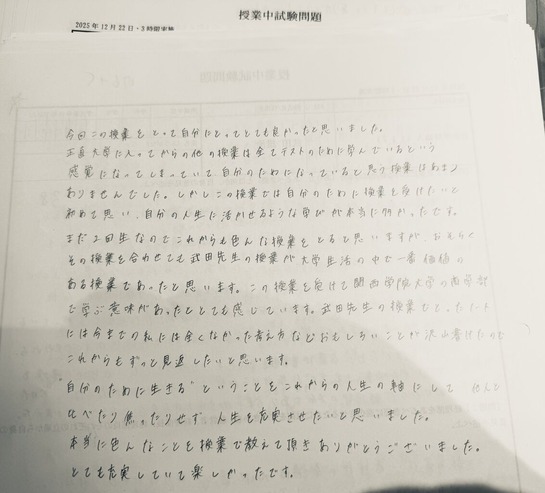 授業中試験問題
2025年12月22日・3時限実施
今回この授業をとって自分にとってとても良かったと思いました。
正直大学に入ってからの他の授業は全てテストのために学んでいるという
感覚になってしまっていて自分のためになっていると思う授業はあまり
ありませんでした。しかしこの授業では自分のために授業を受けたいと
初めて思い、自分の人生に活かせるような学びが本当に多かったです。
まだ2回生なのでこれからも色んな授業をとると思いますが、おそらく
その授業を合わせても武田先生の授業が大学生活の中で一番価値の
ある授業であったと思います。この授業を受けて関西学院大学の商学部
で学ぶ意味があったととても感じています。武田先生の授業でとったノート
には今までの私には全くなかった考え方などおもしろいことが沢山書けたので
これからもずっと見返したいと思います。
"自分のために生きる"ということをこれからの人生の軸にして 他人と
比べたり焦ったりせず 人生を充実させたいと思いました。
本当に色んなことを授業で教えて頂きありがとうございました。
とても充実していて楽しかったです。